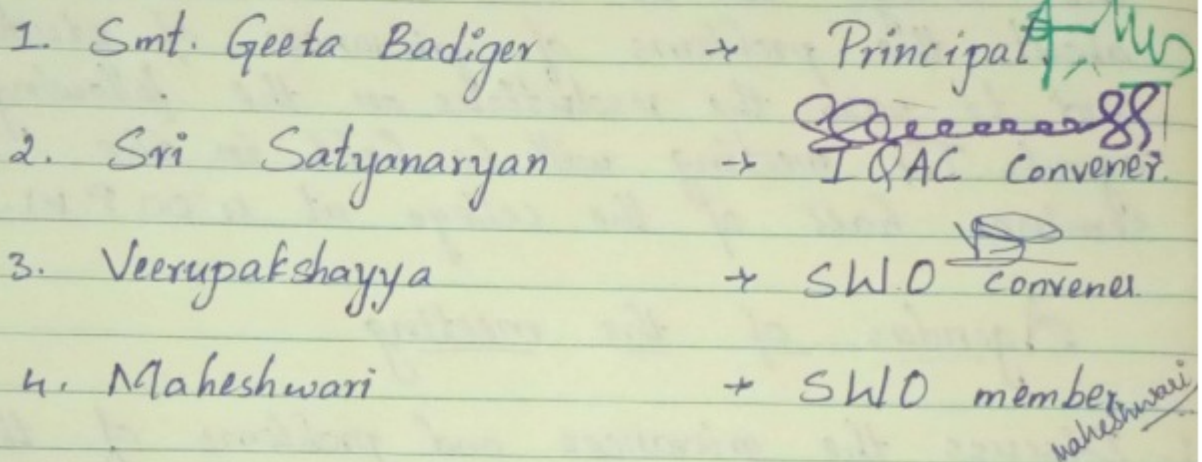 1. Smt. Geeta Badiger → Principal.
2. Sri Satyanaryan → IQAC Convener.
3. Veerupakshayya → SWO Convener
4. Maheshwari → SWO member
Maheshwari